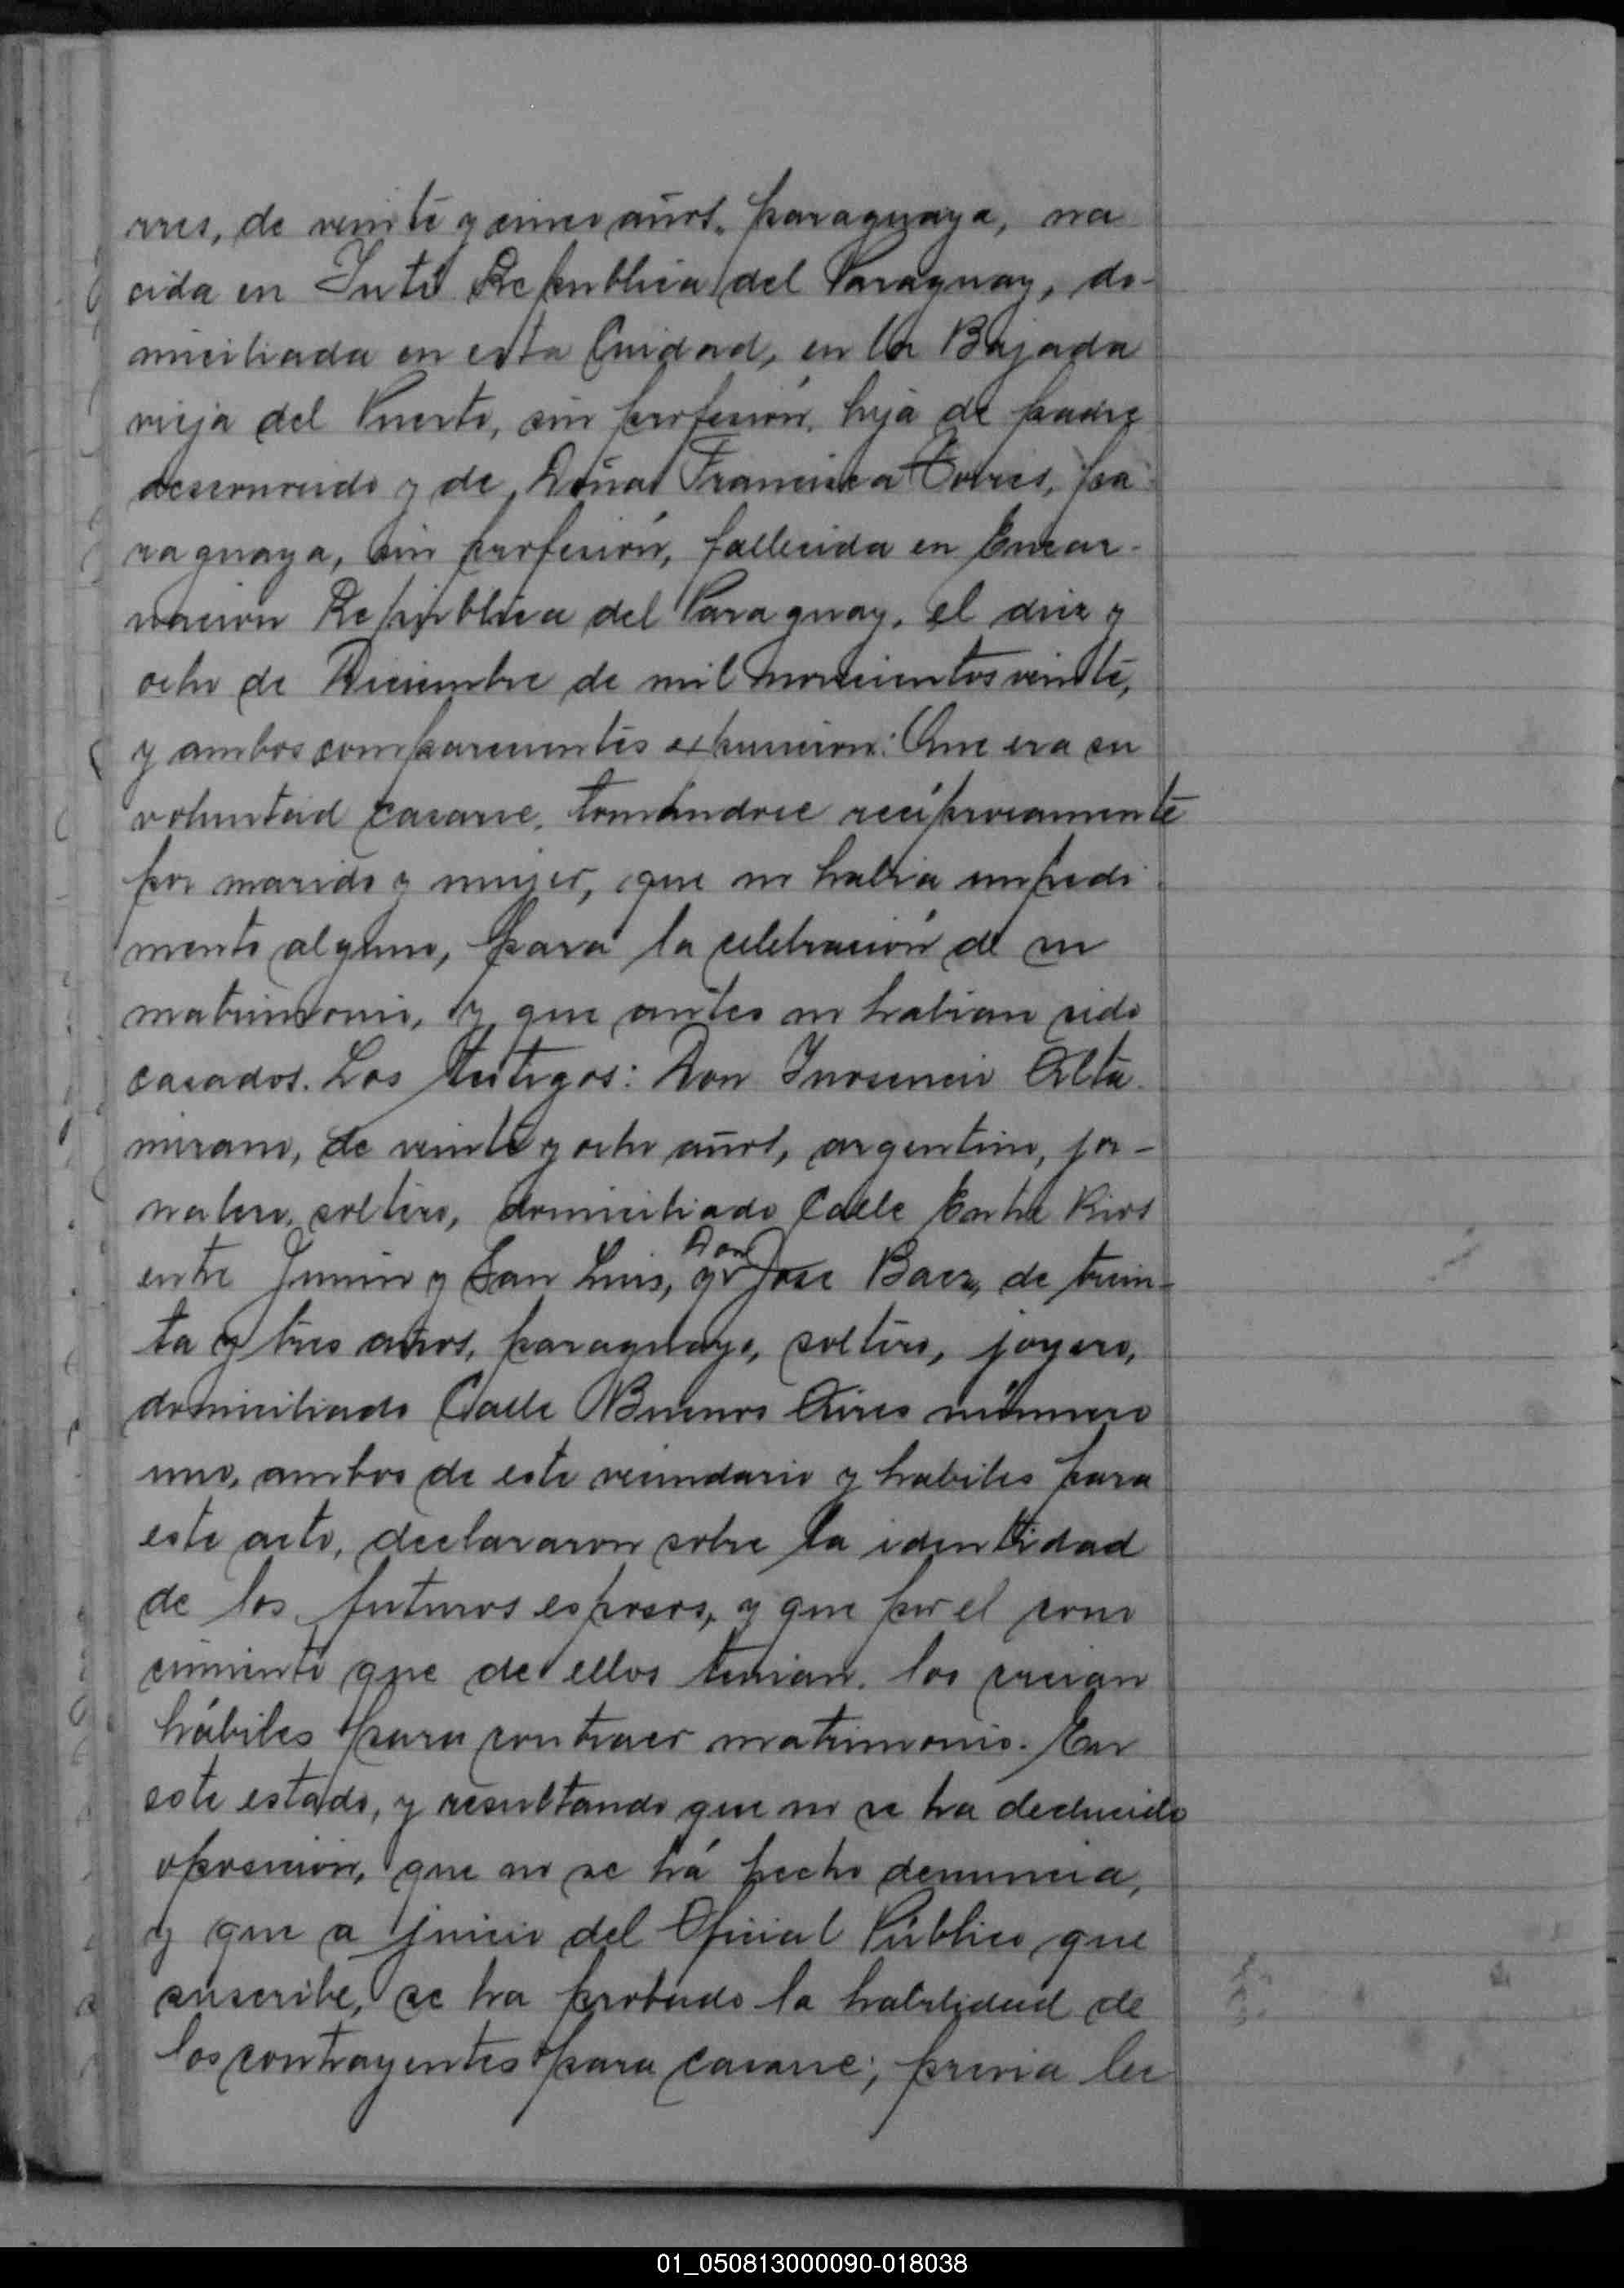 rres, de veinte y cinco años, paraguaya, na
cida en Yuti República del Paraguay, do-
miciliada en esta Ciudad, en la Bajada
vieja del Puerto, sin profesión, hija de padre
desconocido y de Doña Francisca Torres, pa
raguaya, sin profesión, fallecida en Encar-
nacion República del Paraguay, el diez y
ocho de Diciembre de mil novecientos veinte,
y ambos comparecientes expusieron: Que era su
voluntad casarse, tomándose recíprocamente
por marido y mujer, que no habia impedi
mento alguno, para la celebración de su
matrimonio, y que antes no habian sido
casados. Los testigos: Don Inosencio Alta
mirano, de veinte y ocho años, argentino, jor-
nalero, soltero, domiciliado Calle Entre Rios
entre Junin y San Luis, y Don José Baez, de trein-
ta y tres años, paraguayo, soltero, joyero,
domiciliado Calle Buenos Aires número
uno, ambos de este vecindario y habiles para
este acto, declararon sobre la identidad
de los futuros esposos, y que por el cono
cimiento que de ellos tenian, los creian
hábiles para contraer matrimonio. En
este estado, y resultando que no se ha deducido
oposición, que no se há hecho denuncia,
y que a juicio del Oficial Público que
suscribe, se ha probado la habilidad de
los contrayentes para casarse; previa lec
01_050813000090-018038